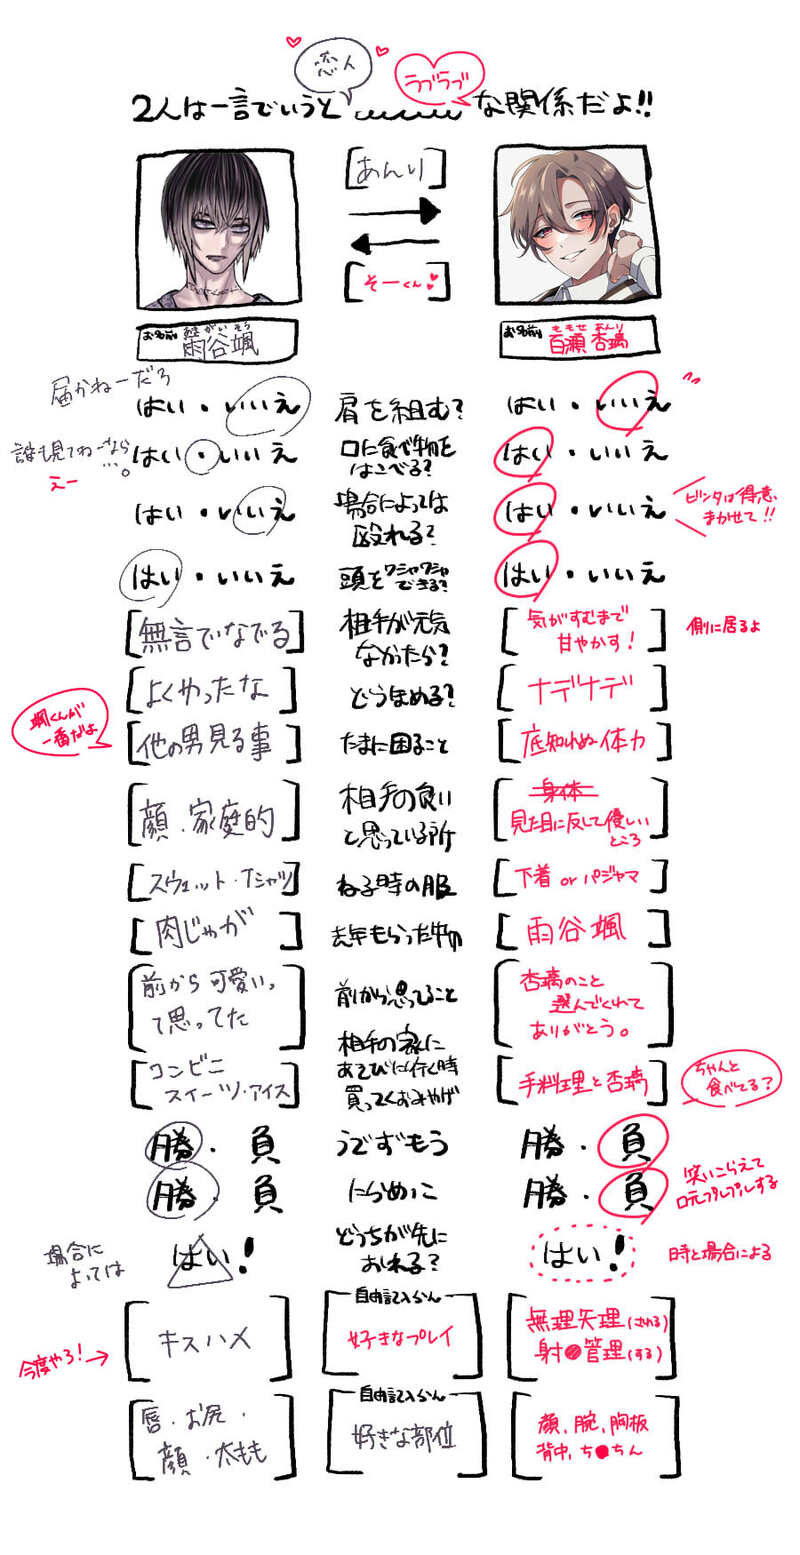 恋人
ラブラブ
2人は一言でいうと
な関係だよ!!
[あんり]
[そーくん]
お名前
あまがいそう
雨谷颯
お名前
ももせあんり
百瀬杏璃
届かねーだろ
はい・いいえ
肩を組む?
はい・いいえ
誰も見てねーなら
…。
えー
はい・いいえ
口に食べ物を
はこべる?
はい・いいえ
はい・いいえ
場合によっては
殴れる?
はい・いいえ
ビンタは得意、
まかせて!!
はい・いいえ
頭をワシャワシャ
できる?
はい・いいえ
[無言でなでる]
相手が元気
なかったら?
[気がすむまで
甘やかす!]
側に居るよ
[よくやったな]
どうほめる?
[ナデナデ]
颯くんが
一番だよ
[他の男見る事]
たまに困ること
[底知れぬ体力]
[顔・家庭的]
相手の良い
と思っている所
[身体
見た目に反して優しい
ところ]
[スウェット・Tシャツ]
ねる時の服
[下着 or パジャマ]
[肉じゃが]
去年もらった中の
[雨谷颯]
[前から可愛いっ
て思ってた]
前から思ってること
[杏璃のこと
選んでくれて
ありがとう。]
[コンビニ
スイーツ・アイス]
相手の家に
あそびに行く時
買ってくおみやげ
[手料理と杏璃]
ちゃんと
食べてる?
勝・負
うでずもう
勝・負
勝・負
にらめっこ
勝・負
笑いこらえて
口元プルプルする
場合に
よっては
はい!
どうちが先に
おれる?
はい!
時と場合による
今度やろ!→
[キスハメ]
自由記入らん
[好きなプレイ]
[無理矢理(される)
射●管理(する)]
[唇・お尻・
顔・太もも]
自由記入らん
[好きな部位]
[顔、腕、胸板
背中、ち●ちん]